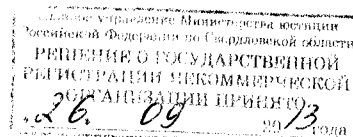 Главное управление Министерства юстиции
Российской Федерации по Свердловской области
РЕШЕНИЕ О ГОСУДАРСТВЕННОЙ
РЕГИСТРАЦИИ НЕКОММЕРЧЕСКОЙ
ОРГАНИЗАЦИИ ПРИНЯТО
"26" 09 2013 года